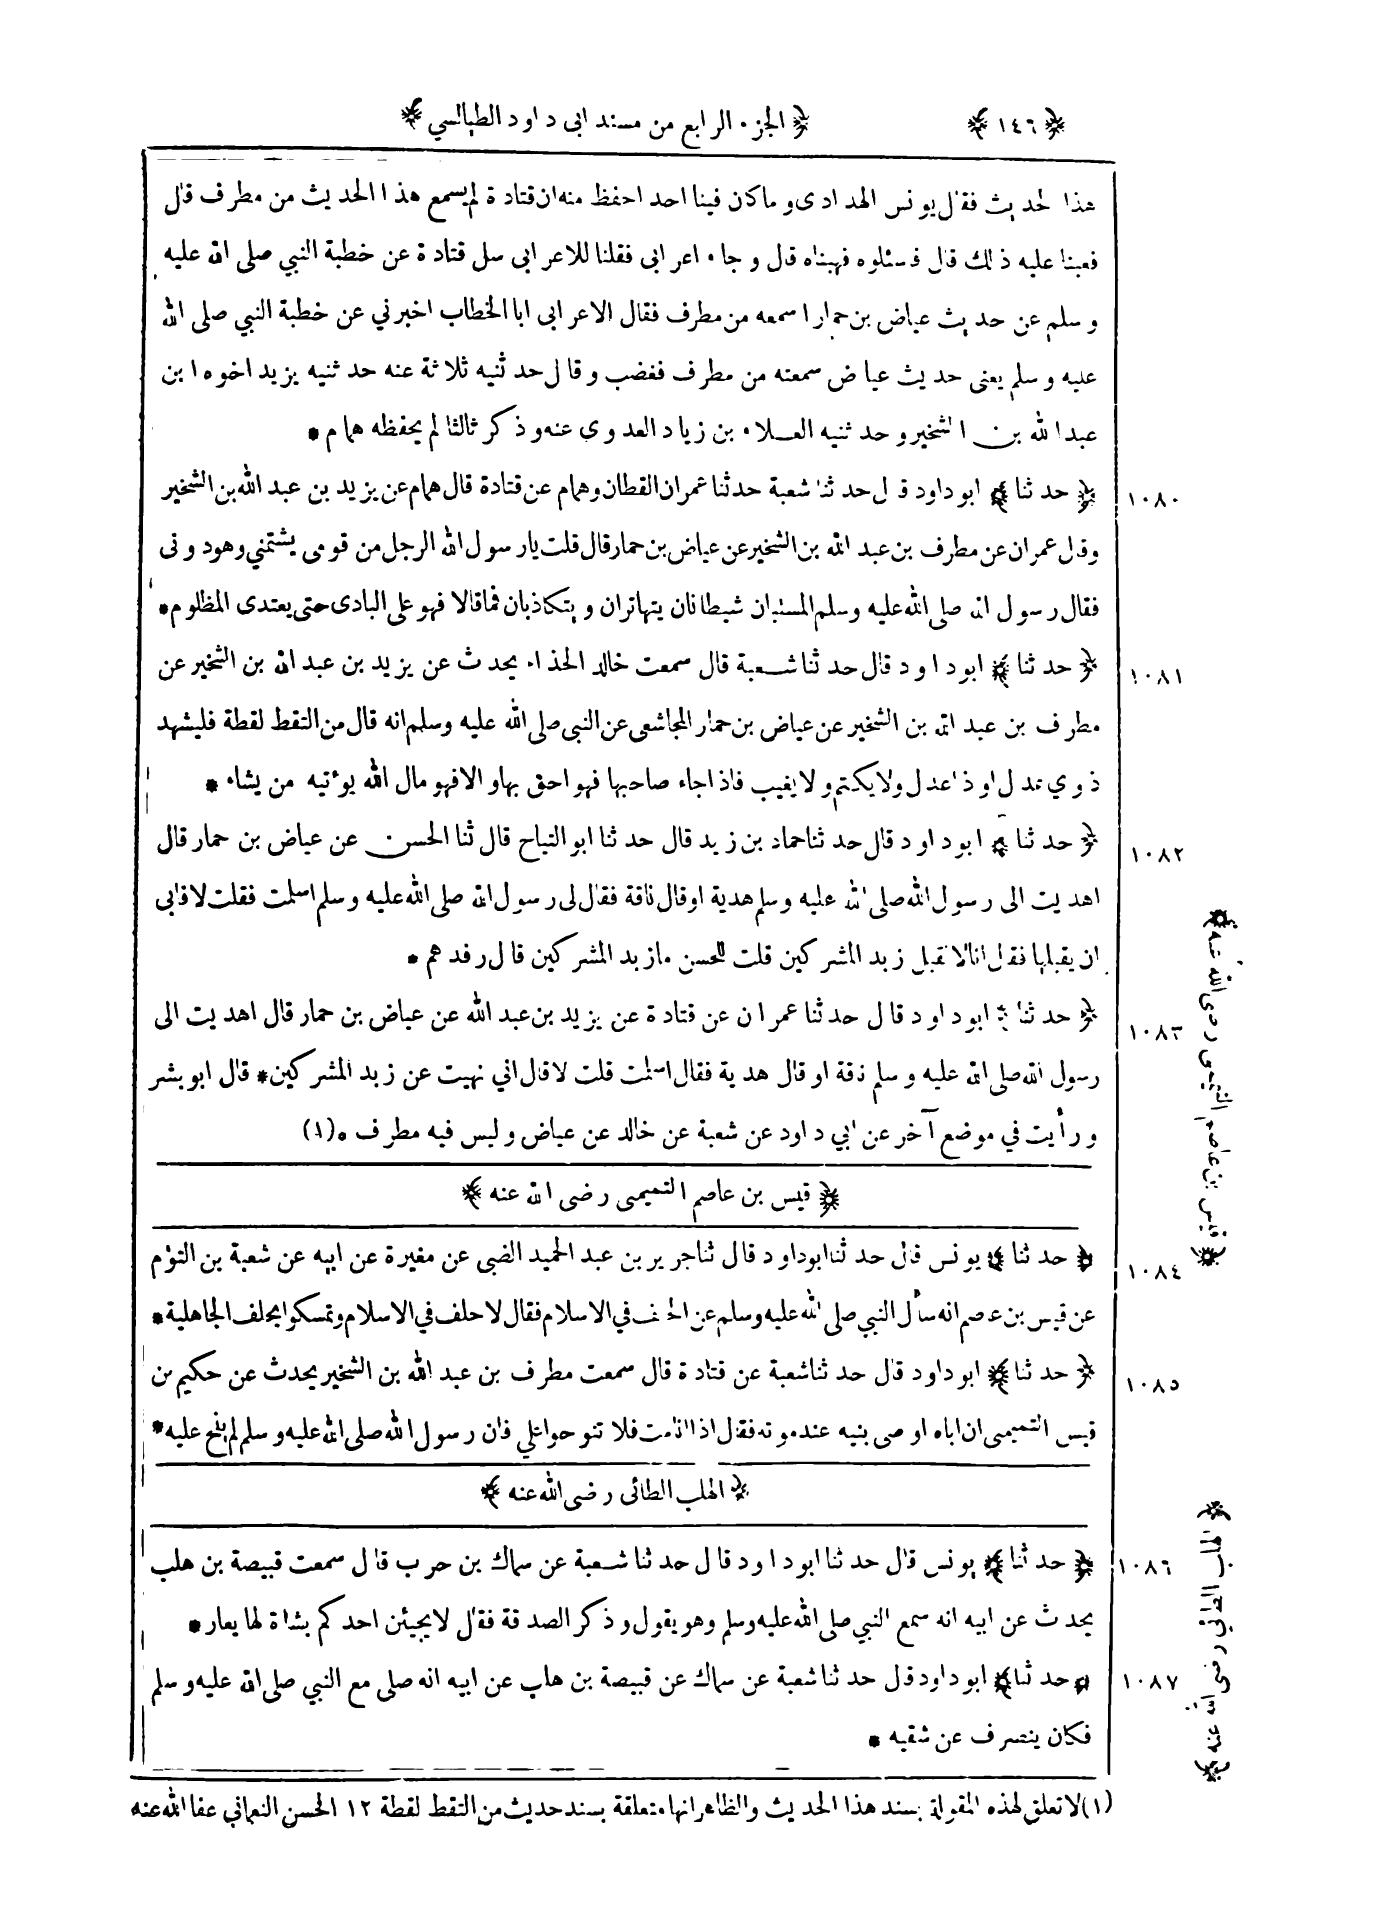 ﴿ ١٤٦ ﴾
﴿ الجزء الرابع من مسند ابى داود الطيالسي ﴾
هذا الحديث فقال يونس الهدادى وما كان فينا احد احفظ منه ان قتادة لم يسمع هذا الحديث من مطرف قال
فعبنا عليه ذلك قال فسئلوه فهبناه قال وجاء اعرابى فقلنا للاعرابى سل قتادة عن خطبة النبي صلى الله عليه
وسلم عن حديث عياض بن حمار اسمعه من مطرف فقال الاعرابى ابا الخطاب اخبرني عن خطبة النبي صلى الله
عليه وسلم يعنى حديث عياض سمعته من مطرف فغضب وقال حدثنيه ثلاثة عنه حدثنيه يزيد اخوه ابن
عبد الله بن الشخير وحدثنيه العلاء بن زياد العدوى عنه وذكر ثالثا لم يحفظه همام *
١٠٨٠ ﴿ حدثنا ﴾ ابو داود قال حدثنا شعبة حدثنا عمران القطان وهمام عن قتادة قال همام عن يزيد بن عبد الله بن الشخير
وقال عمران عن مطرف بن عبد الله بن الشخير عن عياض بن حمار قال قلت يارسول الله الرجل من قومى يشتمني وهو دونى
فقال رسول الله صلى الله عليه وسلم المستبان شيطانان يتهاتران ويتكاذبان فما قالا فهو على البادى حتى يعتدى المظلوم *
١٠٨١ ﴿ حدثنا ﴾ ابو داود قال حدثنا شعبة قال سمعت خالد الحذاء يحدث عن يزيد بن عبد الله بن الشخير عن
مطرف بن عبد الله بن الشخير عن عياض بن حمار المجاشعى عن النبى صلى الله عليه وسلم انه قال من التقط لقطة فليشهد
ذوي عدل او ذا عدل ولا يكتم ولا يغيب فاذا جاء صاحبها فهو احق بها والا فهو مال الله يؤتيه من يشاء *
١٠٨٢ ﴿ حدثنا ﴾ ابو داود قال حدثنا حماد بن زيد قال حدثنا ابو التياح قال ثنا الحسن عن عياض بن حمار قال
اهديت الى رسول الله صلى الله عليه وسلم هدية او قال ناقة فقال لى رسول الله صلى الله عليه وسلم اسلمت فقلت لا فابى
ان يقبلها فقال انا لا نقبل زبد المشركين قلت للحسن مازبد المشركين قال رفدهم *
١٠٨٣ ﴿ حدثنا ﴾ ابو داود قال حدثنا عمران عن قتادة عن يزيد بن عبد الله عن عياض بن حمار قال اهديت الى
رسول الله صلى الله عليه وسلم ناقة او قال هدية فقال اسلمت قلت لا قال اني نهيت عن زبد المشركين * قال ابو بشر
ورأيت في موضع آخر عن ابي داود عن شعبة عن خالد عن عياض وليس فيه مطرف * (١)
﴿ قيس بن عاصم التميمى رضى الله عنه ﴾
﴿ قيس بن عاصم التميمى رضى الله عنه ﴾
١٠٨٤ ﴿ حدثنا ﴾ يونس قال حدثنا ابو داود قال ثنا جرير بن عبد الحميد الضبى عن مغيرة عن ابيه عن شعبة بن التوٴم
عن قيس بن عاصم انه سأل النبي صلى الله عليه وسلم عن الحلف في الاسلام فقال لا حلف في الاسلام وتمسكوا بحلف الجاهلية *
١٠٨٥ ﴿ حدثنا ﴾ ابو داود قال حدثنا شعبة عن قتادة قال سمعت مطرف بن عبد الله بن الشخير يحدث عن حكيم بن
قيس التميمى ان اباه اوصى بنيه عند موته فقال اذا انا مت فلا تنوحوا علي فان رسول الله صلى الله عليه وسلم لم ينح عليه *
﴿ الهلب الطائى رضى الله عنه ﴾
﴿ الهلب الطائي رضى الله عنه ﴾
١٠٨٦ ﴿ حدثنا ﴾ يونس قال حدثنا ابو داود قال حدثنا شعبة عن سماك بن حرب قال سمعت قبيصة بن هلب
يحدث عن ابيه انه سمع النبي صلى الله عليه وسلم وهو يقول وذكر الصدقة فقال لا يجيئن احدكم بشاة لها يعار *
١٠٨٧ ﴿ حدثنا ﴾ ابو داود قال حدثنا شعبة عن سماك عن قبيصة بن هلب عن ابيه انه صلى مع النبي صلى الله عليه وسلم
فكان ينصرف عن شقيه *
(١) لا تعلق لهذه المقولة بسند هذا الحديث والظاهر انها متعلقة بسند حديث من التقط لقطة ١٢ الحسن النعماني عفا الله عنه